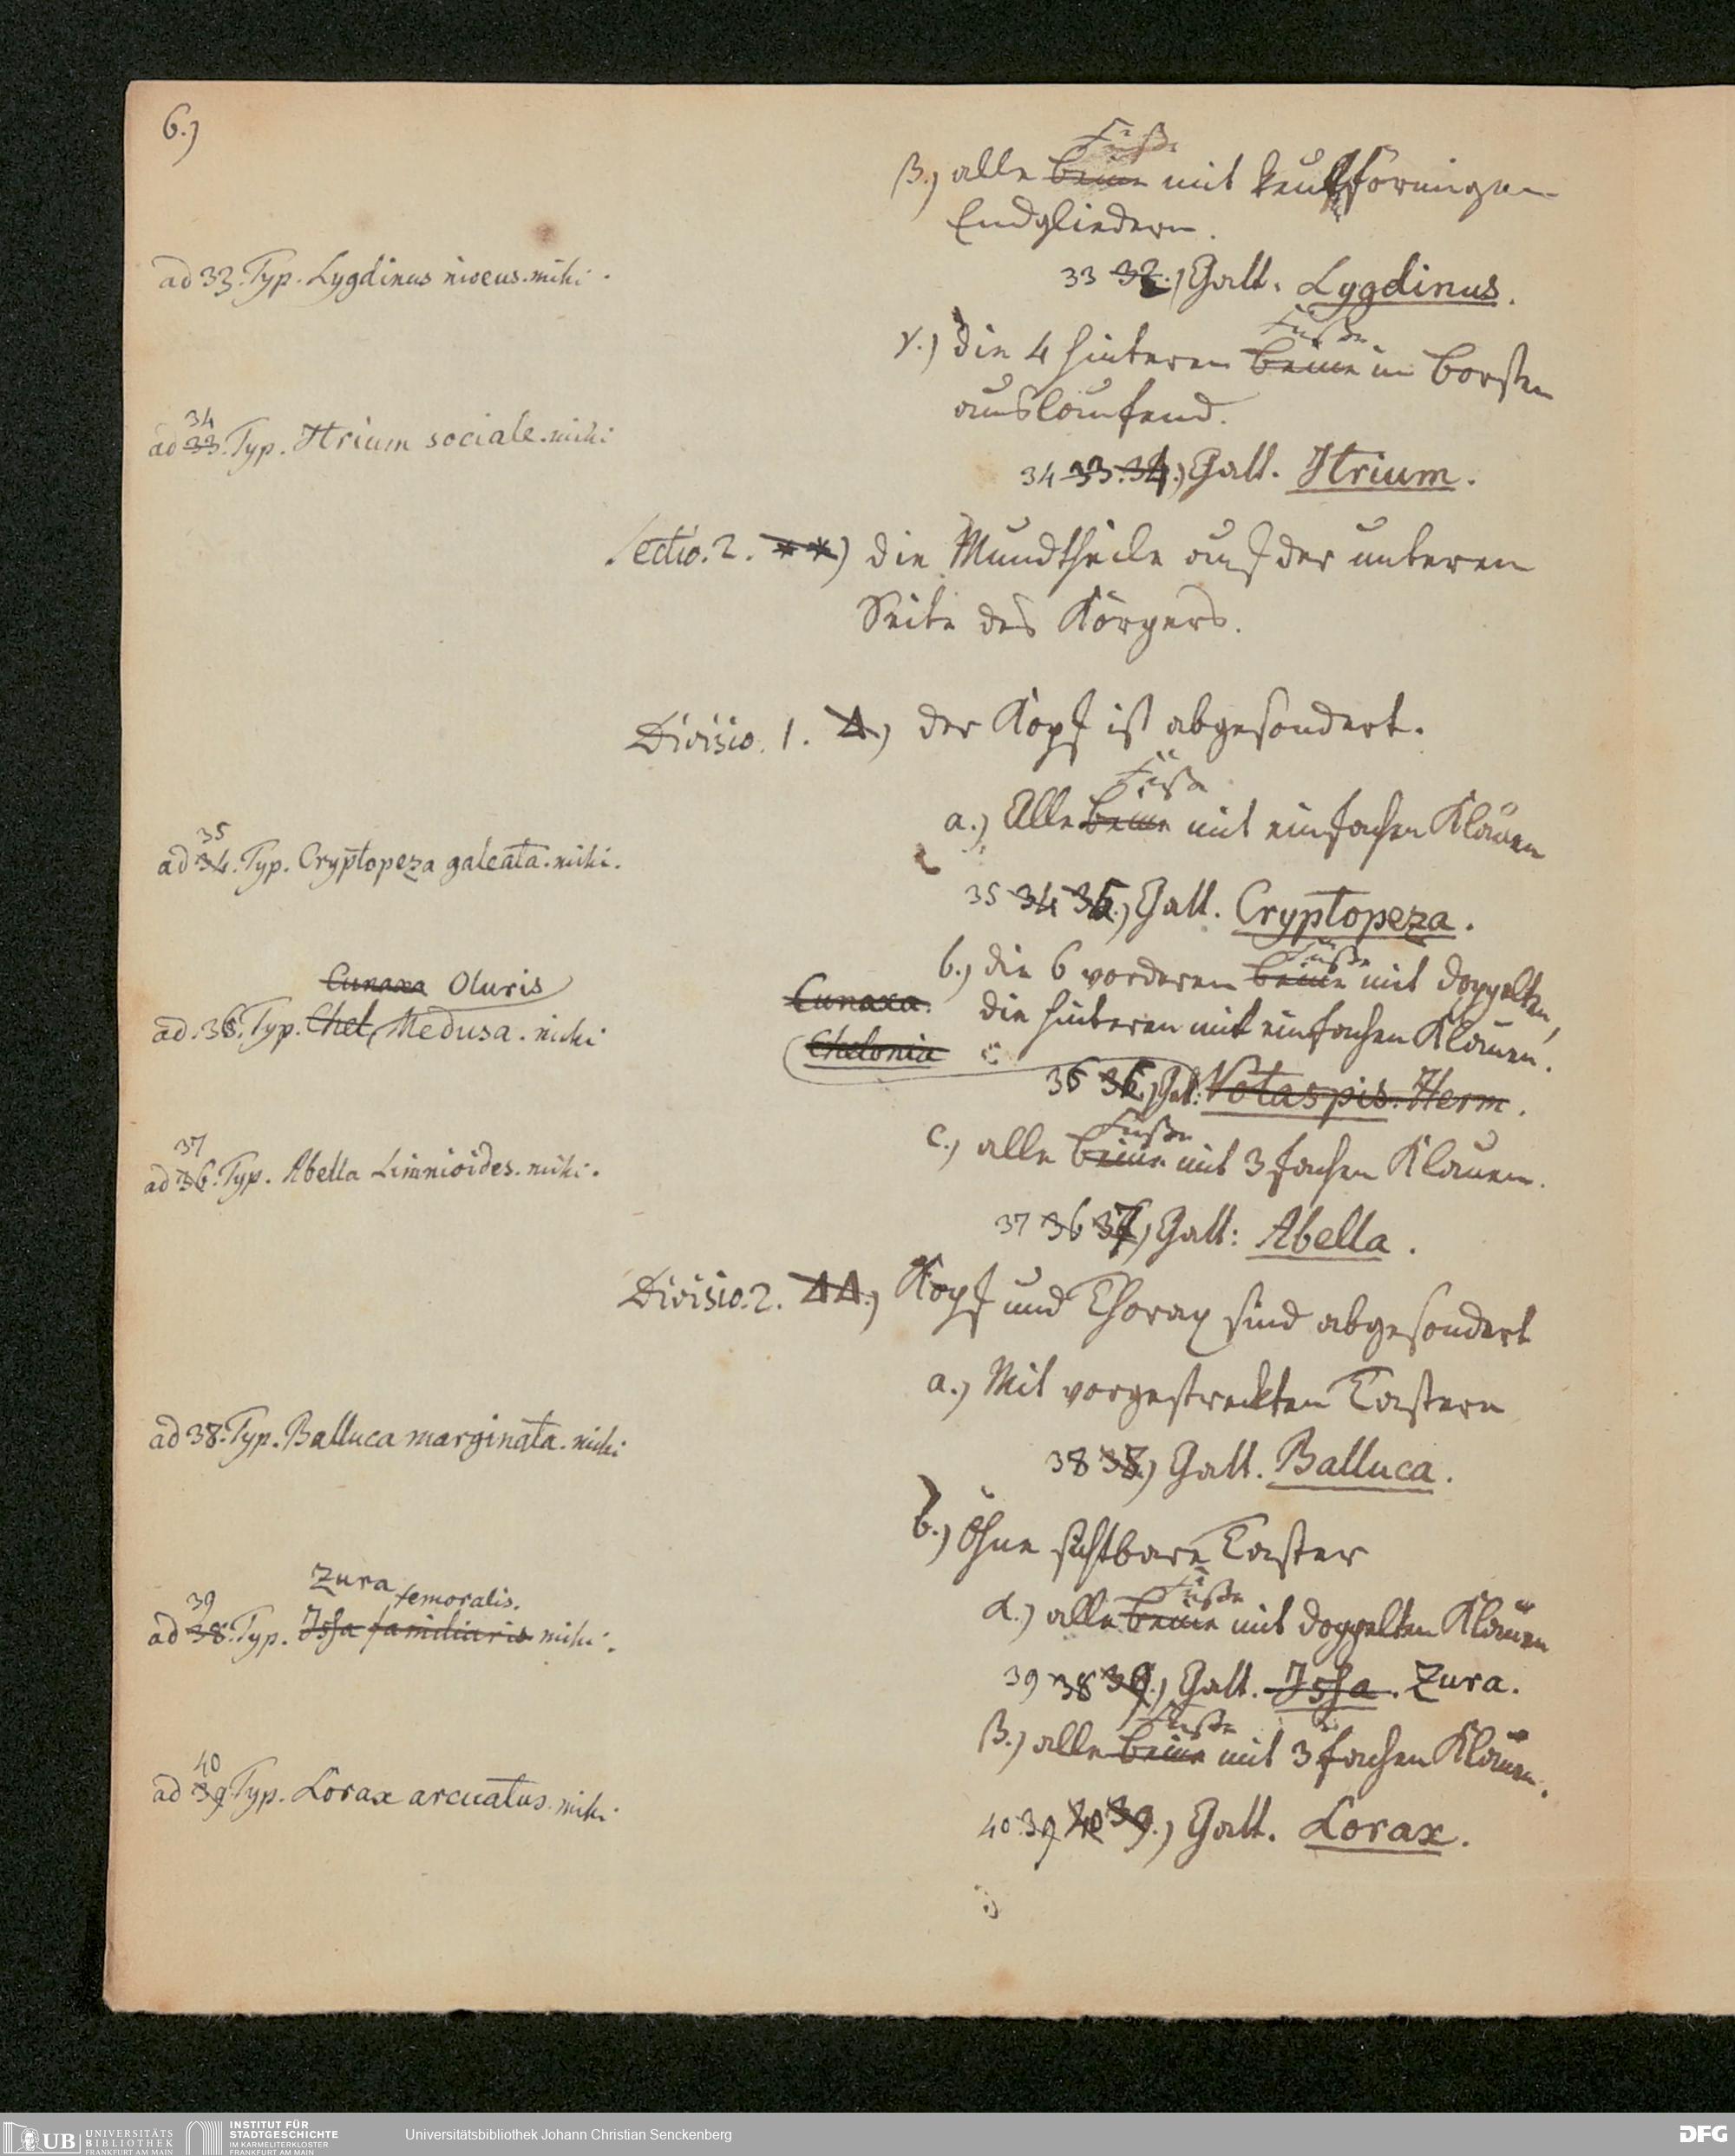 6.)
Füße
β.) alle Beine mit keulförmigen
Endgliedern.
ad 33. Typ. Lygdinus niveus. mihi.
33 32.) Gatt. Lygdinus.
Füße
γ.) die 4 hinteren Beine in Borsten
auslaufend.
34
ad 33. Typ. Itrium sociale. mihi
34 33. 34.) Gatt. Itrium.
Sectio. 2. **) die Mundtheile auf der unteren
Seite des Körpers.
Divisio. 1. Δ.) der Kopf ist abgesondert.
Füße
a.) Alle Beine mit einfachen Klauen
35
ad 34. Typ. Cryptopeza galeata. mihi.
35 34 35.) Gatt. Cryptopeza.
Füße
b.) die 6 vorderen Beine mit doppelten,
Cunaxa. die hinteren mit einfachen Klauen.
Cunaxa Oluris
ad. 36. Typ. Chel. Medusa. mihi
Chelonia
36 36.) Gatt: Notaspis. Herm.
Füße
c.) alle Beine mit 3fachen Klauen.
37
ad 36. Typ. Abella Limnioides. mihi.
37 36 37.) Gatt: Abella.
Divisio. 2. ΔΔ.) Kopf und Thorax sind abgesondert
a.) Mit vorgestreckten Tastern
ad 38. Typ. Balluca marginata. mihi
38 38.) Gatt. Balluca.
b.) Ohne sichtbare Taster
Füße
α.) alle Beine mit doppelten Klauen
Zura femoralis.
39
ad 38. Typ. Issa familiaris mihi.
39 38 39.) Gatt. Issa. Zura.
Füße
β.) alle Beine mit 3fachen Klauen.
40
ad 39. Typ. Lorax arcuatus. mihi
40 39 40 39.) Gatt. Lorax.
UB UNIVERSITÄTS
BIBLIOTHEK
FRANKFURT AM MAIN
INSTITUT FÜR
STADTGESCHICHTE
IM KARMELITERKLOSTER
FRANKFURT AM MAIN
Universitätsbibliothek Johann Christian Senckenberg
DFG